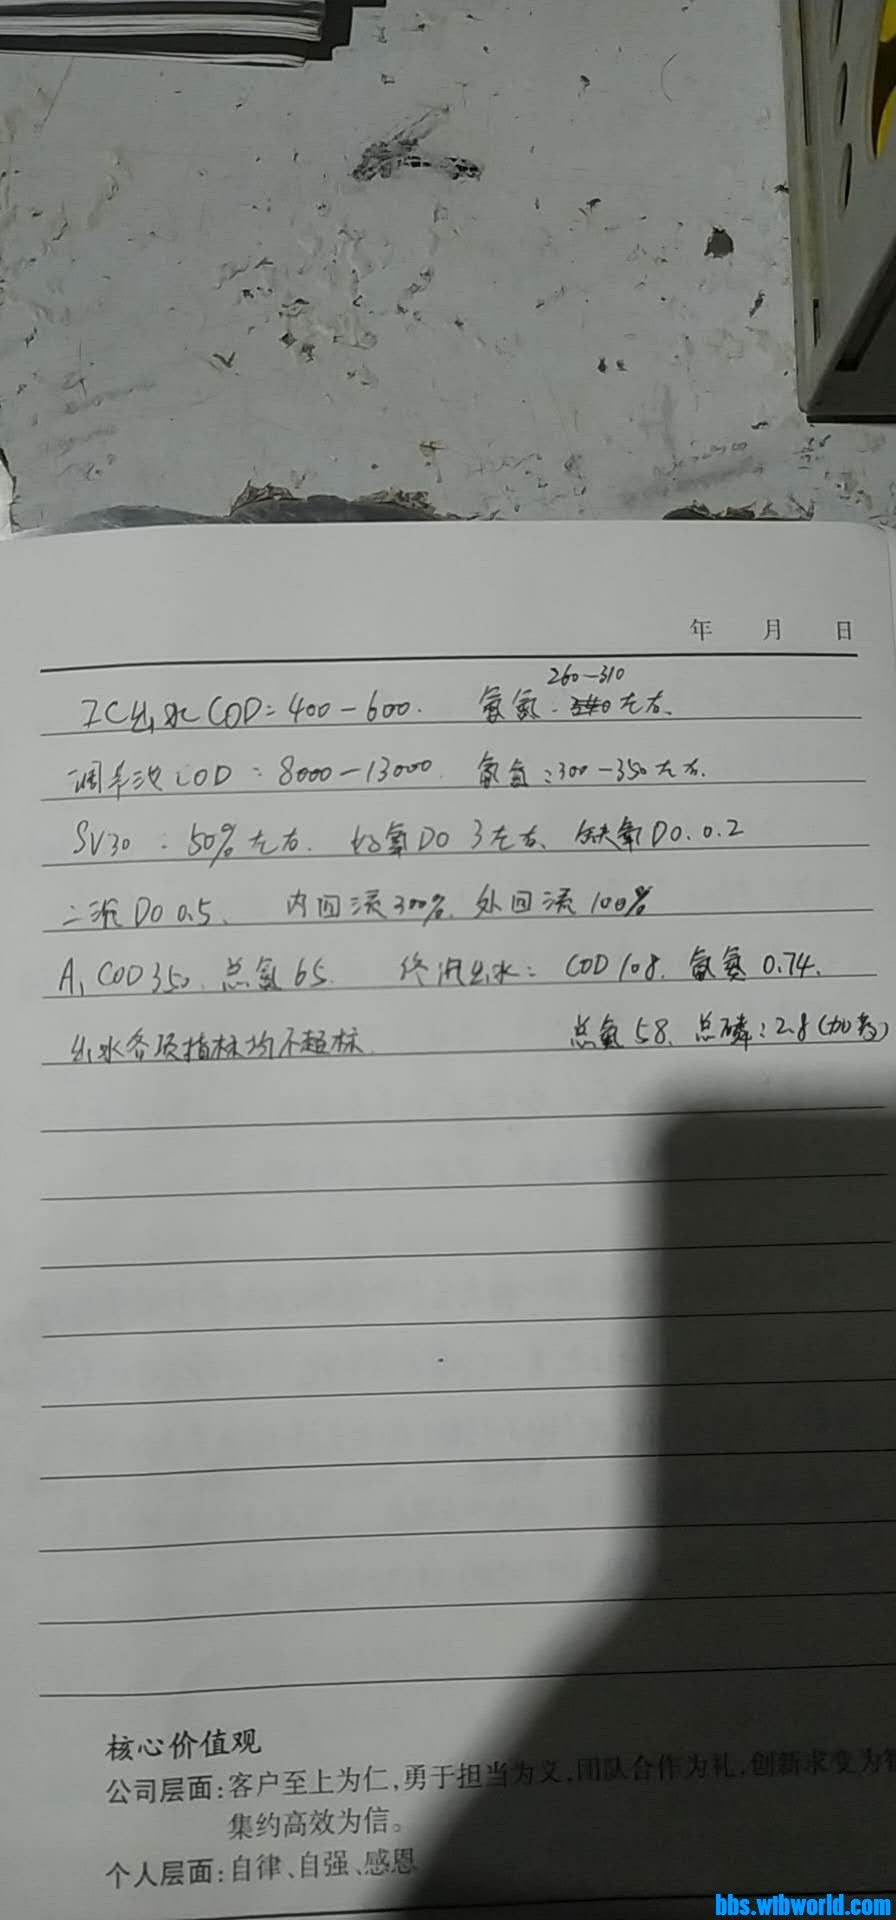 年 月 日
260-310
IC出水COD=400-600. 氨氮: 左右、
调节池COD:8000-13000 氨氮:300-350左右.
SV30:50%左右. 好氧DO 3左右、缺氧DO.0.2
二沉DO 0.5、 内回流300%、外回流100%
A1 COD350、总氮65. 终沉出水: COD108、氨氮0.74.
出水各项指标均不超标. 总氮58、总磷:2.8(加药)
核心价值观
公司层面:客户至上为仁,勇于担当为义,团队合作为礼,创新求变为智
集约高效为信。
个人层面:自律、自强、感恩
bbs.wibworld.com